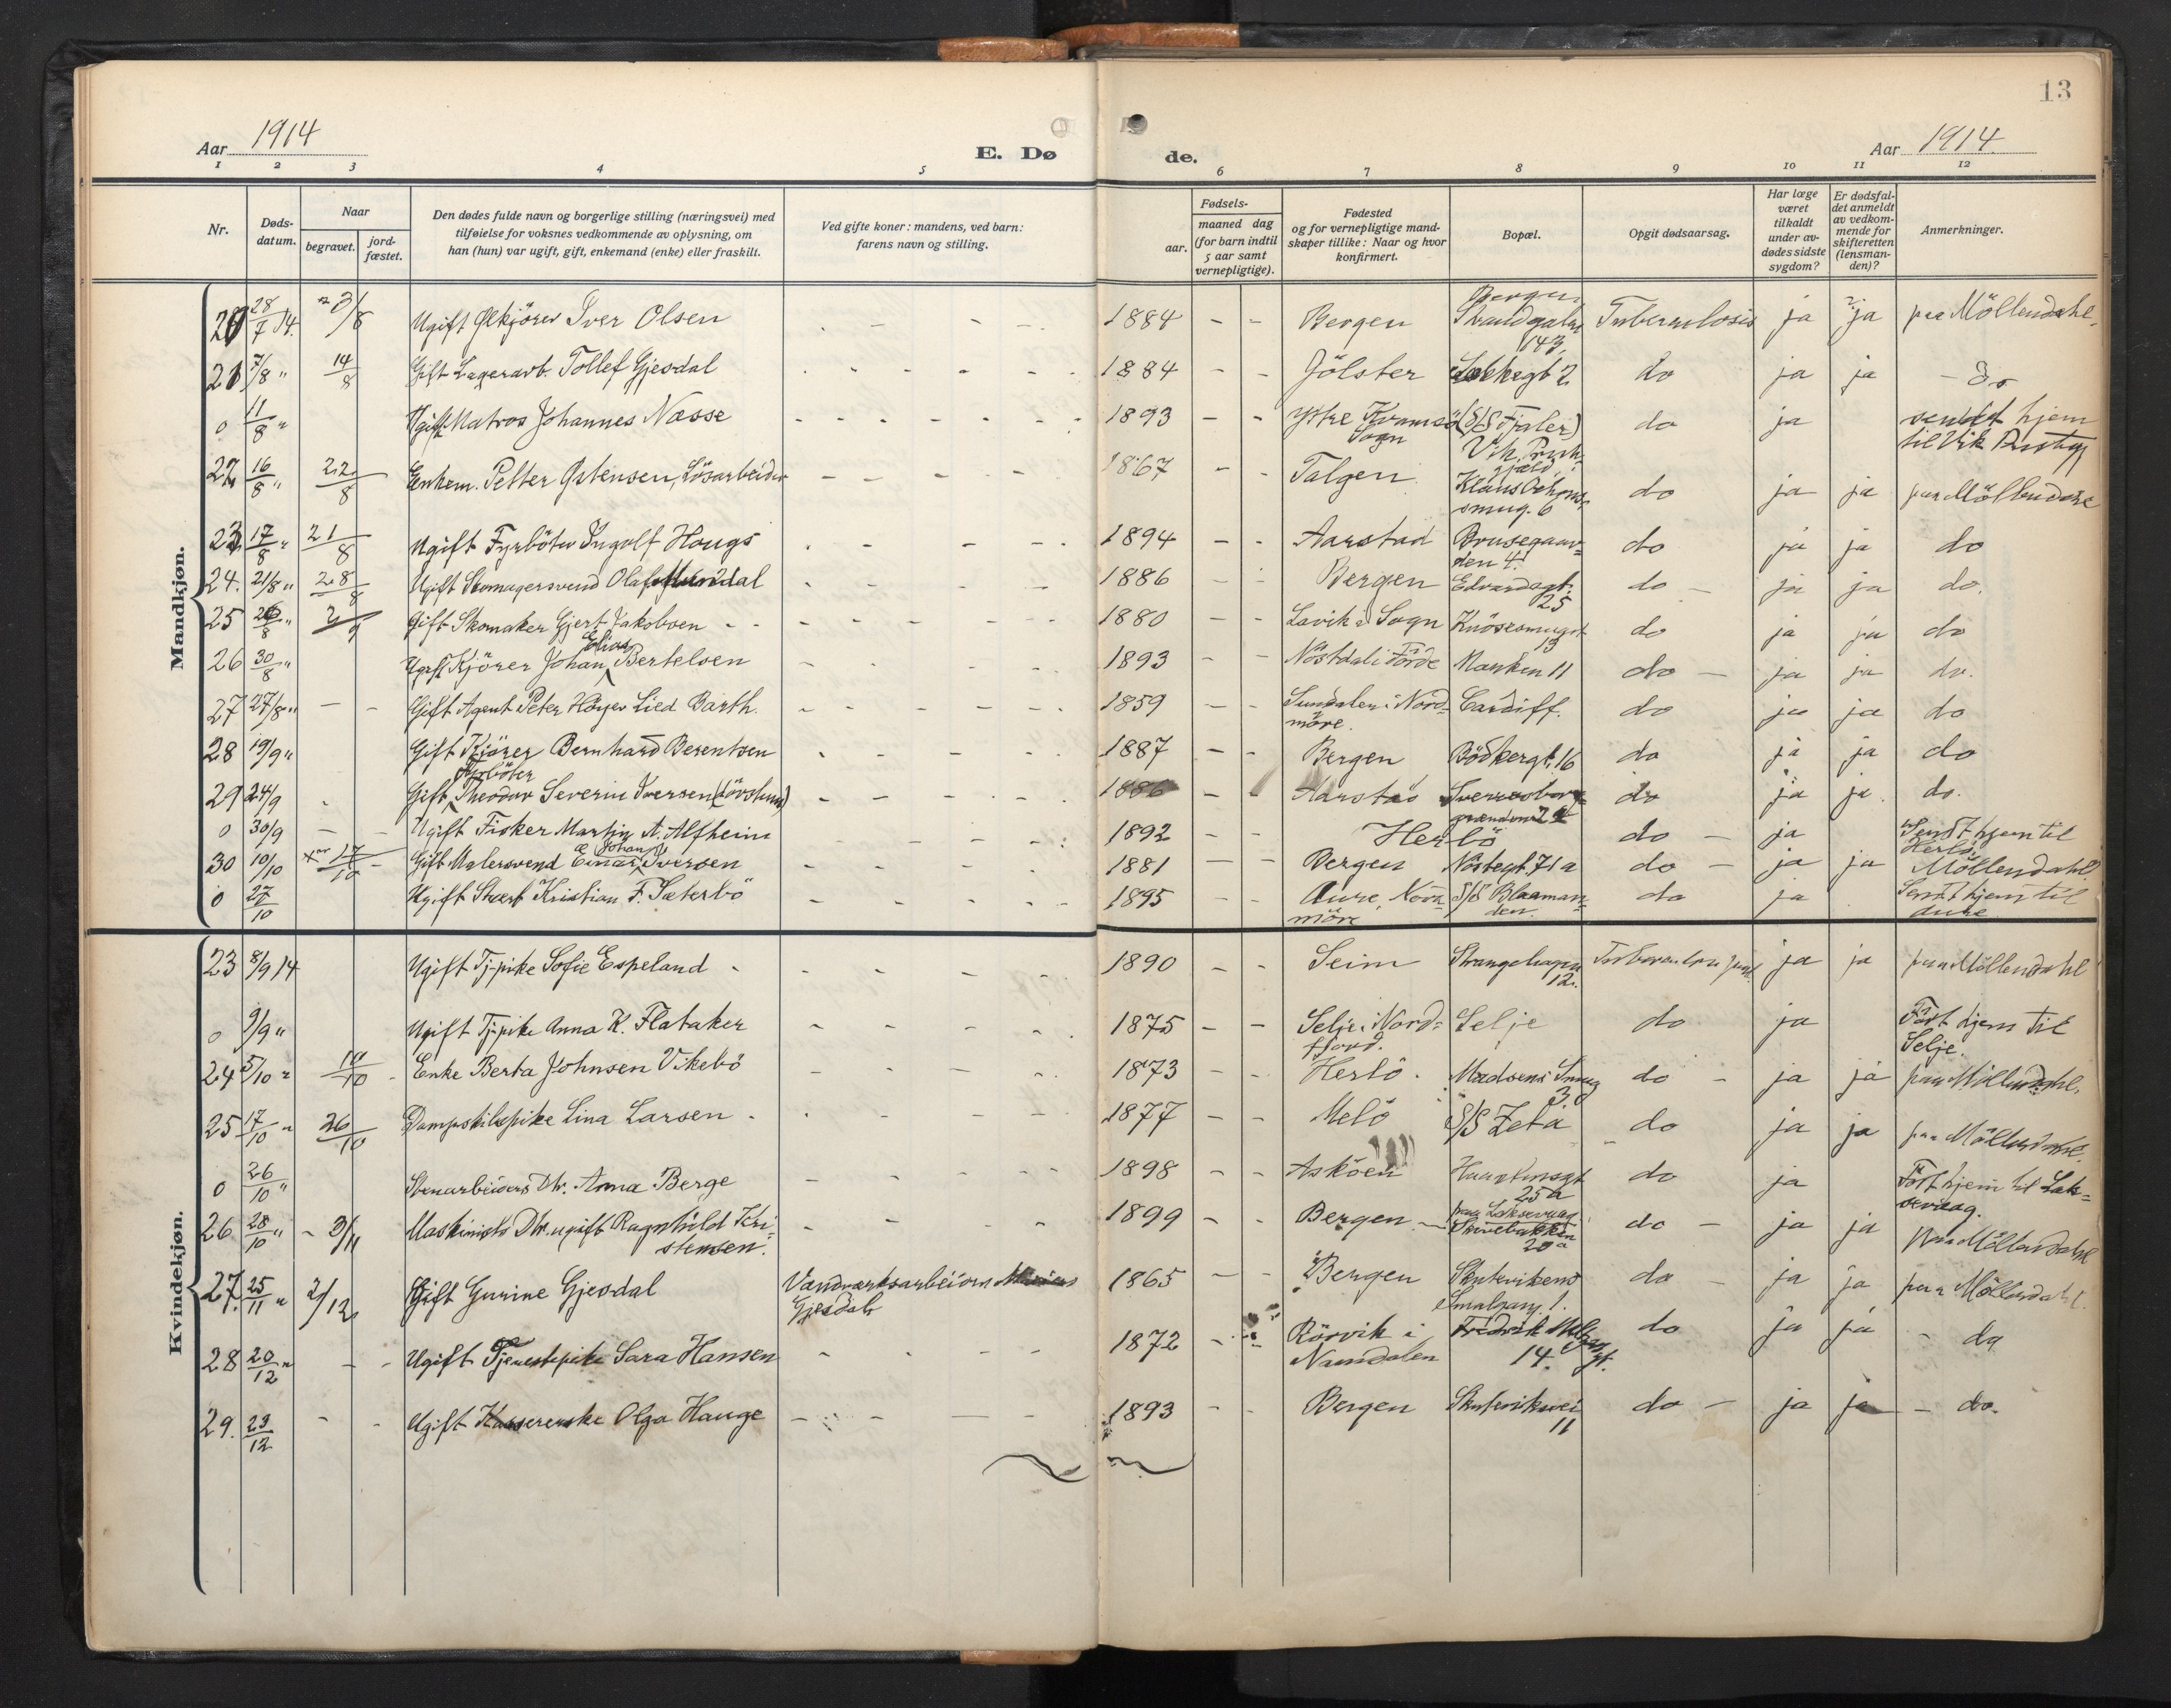 13
Aar 1914
E. Dø
de.
Aar 1914.
1 2 3 4 5 6 7 8 9 10 11 12
Nr.
Døds-
datum.
Naar
begravet.
jord-
fæstet.
Den dødes fulde navn og borgerlige stilling (næringsvei) med
tilføielse for voksnes vedkommende av oplysning, om
han (hun) var ugift, gift, enkemand (enke) eller fraskilt.
Ved gifte koner: mandens, ved barn:
farens navn og stilling.
Fødsels-
aar.
maaned dag
(for barn indtil
5 aar samt
vernepligtige).
Fødested
og for vernepligtige mand-
skaper tillike: Naar og hvor
konfirmert.
Bopæl.
Opgit dødsaarsag.
Har læge
været
tilkaldt
under av-
dødes sidste
sygdom?
Er dødsfal-
det anmeldt
av vedkom-
mende for
skifteretten
(lensman-
den)?
Anmerkninger.
Mandkjøn.
20 28/7 14. 3/8 Ugift Ølkjörer Iver Olsen 1884 - - Bergen Bergen Strandgaten 143 Tuberculosis ja ja paa Möllendahl
21 7/8 " 14/8 Gift Lagerarb. Tollef Gjesdal 1884 - - Jölster do ja ja - Do
0 11/8 " Ugift Matros Johannes Næsse 1893 - - Ytre Kvamsö Sogn (S/S Fjaler) Vik do ja sendt hjem til Vik
22 16/8 " 22/8 Enkem. Petter Östensen, Lösarbeider 1867 - - Talgen smug. 6 do ja ja paa Möllendahl
23 17/8 " 21/8 Ugift Fyrböter Ingolf Hougs 1894 - - Aarstad Brusegaar-
den 4. do ja ja do
24. 21/8 " 28/8 Ugift Skomagersvend Olaf Mundal 1886 - - Bergen Edvardsgt. 25 do - ja ja do.
25 26/8 " 2/9 Gift Skomaker Gjert Jakobsen 1880 - - Lavik i Sogn Knösesmuget 13 do ja ja do
26 30/8 " Ugift Kjörer Johan Elias Bertelsen 1893 - - Nöstdal i Förde Marken 11 do - ja ja do.
27 27/8 " - - Gift Agent Peter Höyer Lied Barth. 1859 - - Sundalen i Nord-
möre. Cardiff. do ja ja do
28 19/9 " Gift Kjörer Bernhard Berentsen 1887 - - Bergen Bödkergt. 16 do ja ja do
29 24/9 Gift Fyrböter Theodor Severin Iversen (Lövslund) 1886 - - Aarstad Sverresborg- do ja ja do.
0 30/9 - - Ugift Fisker Martin A. Alfheim 1892 - - Herlö do - ja Sendt hjem til
Herlö.
30 10/10 17/10 - Gift Malersvend Einar Johan Iversen 1881 - - Bergen Nöstegt. 71a do - ja ja Möllendahl
0 27/10 Ugift Stuert Kristian F. Sæterbö 1895 - - Aure, Nord-
möre S/S Blaaman-
den. do ja Sendt hjem til
Aure
Kvindekjøn.
23 8/9 14 Ugift Tj.pike Sofie Espeland 1890 - - Seim Strangehagen 12. ja ja paa Möllendahl
0 9/9 " Ugift Tj.pike Anna K. Flataker 1875 - - Selje i Nord-
fjord. Selje do ja Fört hjem til
Selje.
24 5/10 " 10/10 - Enke Berta Johnsen Vikebö 1873 - - Herlö. Madsens Smug 3 do - ja ja paa Möllendahl.
25 17/10 " 26/10 Dampskibspike Lina Larsen 1877 - - Melö S/S Zeta do ja ja paa Möllendahl.
0 26/10 " Stenarbeiders Dtr. Anna Berge 1898 - - Asköen 25a do ja Fört hjem til Lak-
sevaag.
26 28/10 " - 3/11 Maskinists Dtr. ugift Ragnhild Kri-
stensen. 1899 - - Bergen paa Laksevaag 20a do - ja ja paa Möllendahl
27. 25/11 " 2/12 Gift Gurine Gjesdal Vandværksarbeider
Gjesdal 1865 - - Bergen Skutevikens
Smalgang 1. do - ja ja paa Möllendahl.
28 20/12 " - - Ugift Tjenestepike Sara Hansen 1872 - - Rörvik i
Namdalen Fredrik Meltzers gt. 14. do ja ja - do
29. 23/12 - - Ugift Kassererske Olga Hauge 1893 - - Bergen Skutevikvei 11 do - ja ja - do.